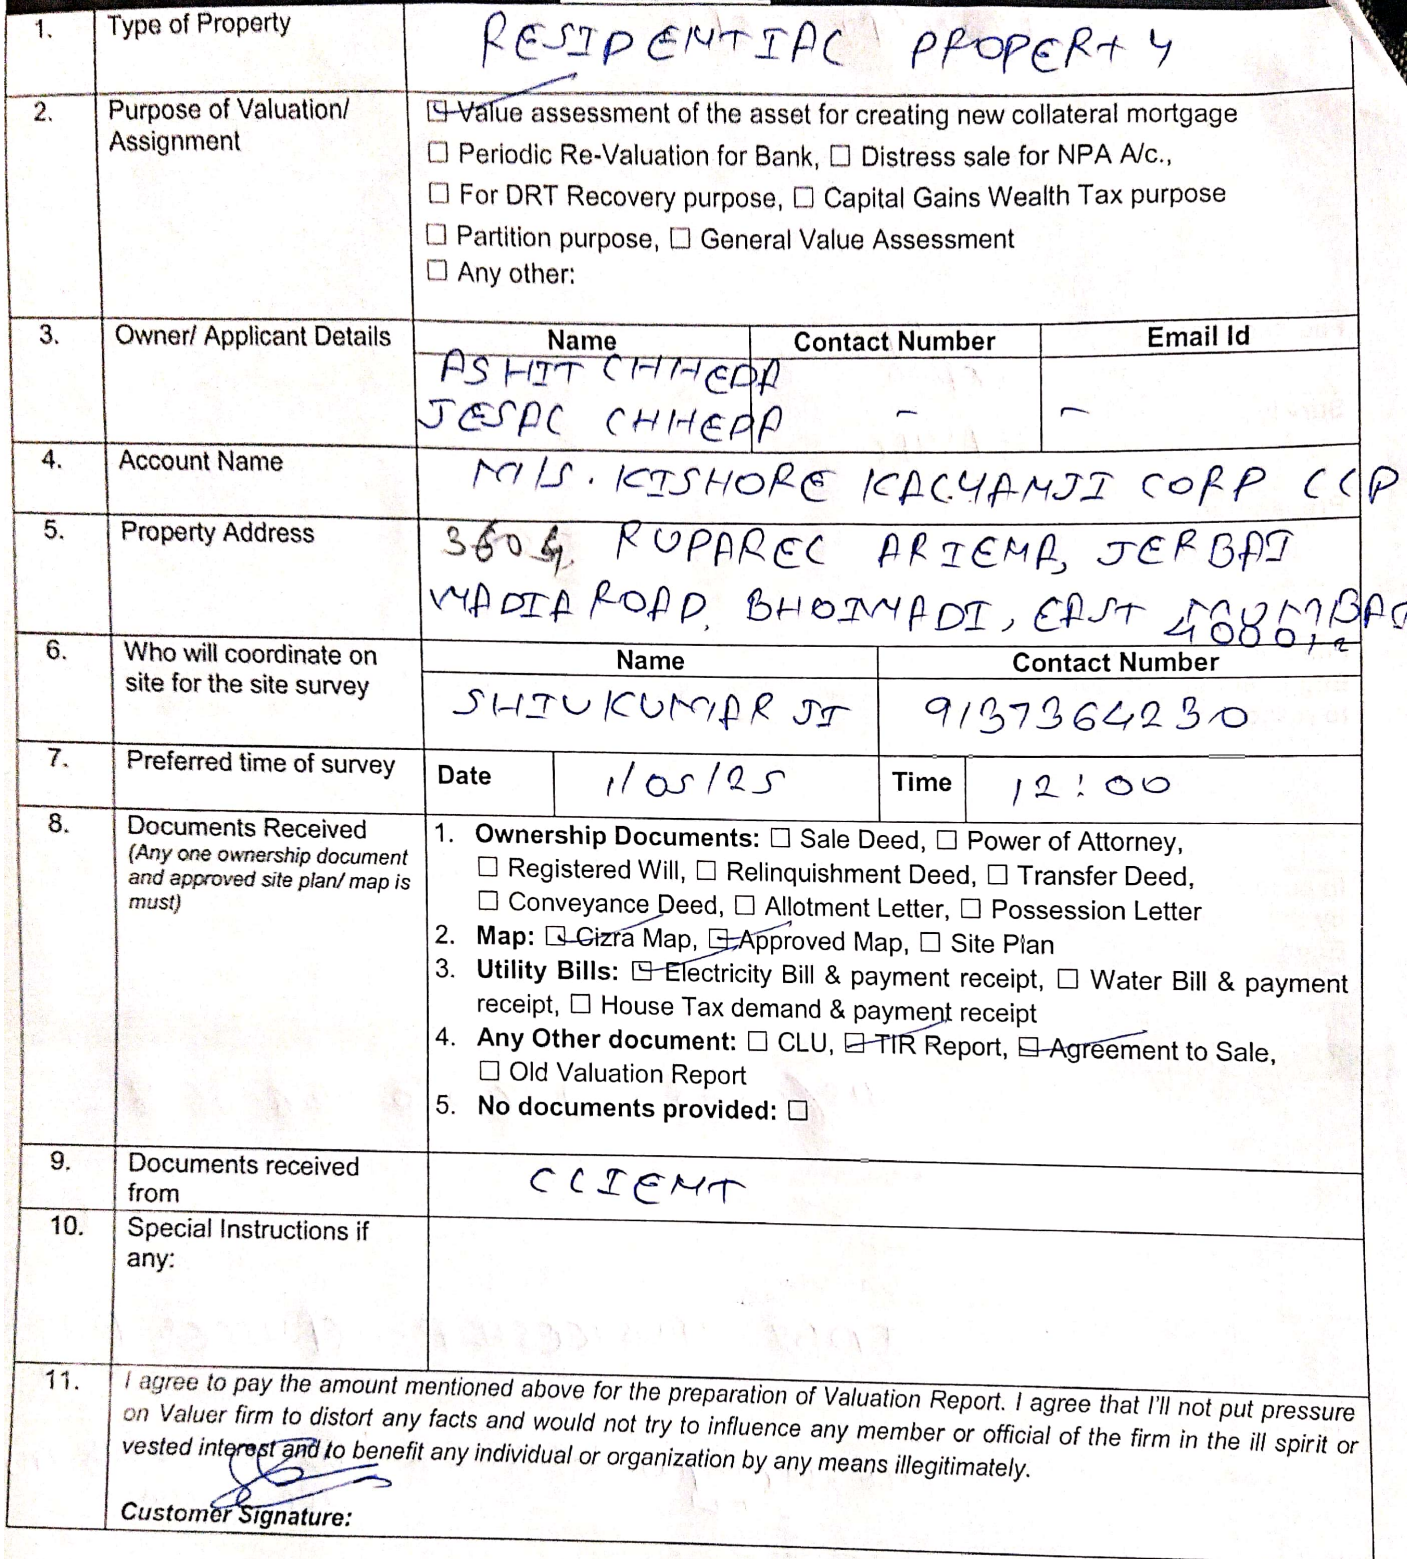 1. Type of Property RESIDENTIAL PROPERTY
2. Purpose of Valuation/ Assignment
☑ Value assessment of the asset for creating new collateral mortgage
☐ Periodic Re-Valuation for Bank, ☐ Distress sale for NPA A/c.,
☐ For DRT Recovery purpose, ☐ Capital Gains Wealth Tax purpose
☐ Partition purpose, ☐ General Value Assessment
☐ Any other:
3. Owner/ Applicant Details
Name Contact Number Email Id
ASHIT CHHEDA
JESAL CHHEDA - -
4. Account Name M/S. KISHORE KALYANJI CORP LLP
5. Property Address
3604, RUPAREL ARIENA, JERBAI
WADIA ROAD, BHOIWADI, EAST
6. Who will coordinate on site for the site survey
Name Contact Number
SHIVKUMAR JI 9137364230
7. Preferred time of survey Date 1/05/25 Time 12:00
8. Documents Received
(Any one ownership document
and approved site plan/ map is
must)
1. Ownership Documents: ☐ Sale Deed, ☐ Power of Attorney,
☐ Registered Will, ☐ Relinquishment Deed, ☐ Transfer Deed,
☐ Conveyance Deed, ☐ Allotment Letter, ☐ Possession Letter
2. Map: ☑ Cizra Map, ☑ Approved Map, ☐ Site Plan
3. Utility Bills: ☑ Electricity Bill & payment receipt, ☐ Water Bill & payment
receipt, ☐ House Tax demand & payment receipt
4. Any Other document: ☐ CLU, ☑ TIR Report, ☑ Agreement to Sale,
☐ Old Valuation Report
5. No documents provided: ☐
9. Documents received from CLIENT
10. Special Instructions if
any:
11. I agree to pay the amount mentioned above for the preparation of Valuation Report. I agree that I'll not put pressure
on Valuer firm to distort any facts and would not try to influence any member or official of the firm in the ill spirit or
vested interest and to benefit any individual or organization by any means illegitimately.
Customer Signature: